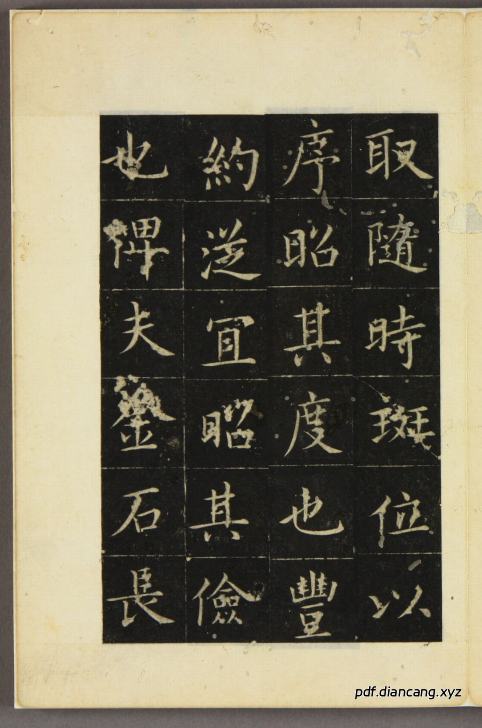 取隨時班位以
序昭其度也豐
約從宜昭其儉
也俾夫鏨石長
pdf.diancang.xyz